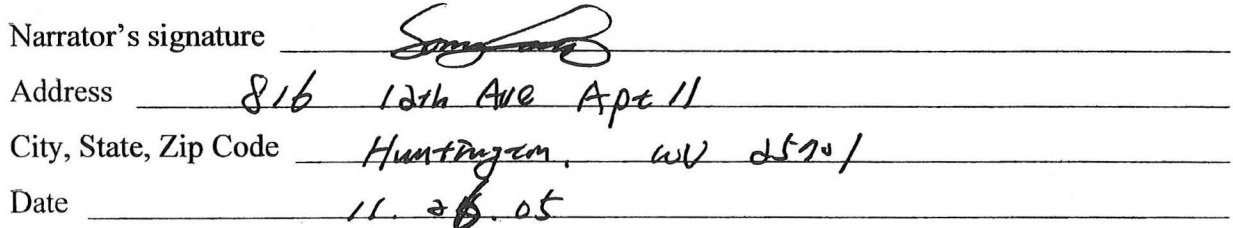 Narrator's signature
Address 816 12th Ave Apt 11
City, State, Zip Code Huntington, WV 25701
Date 11. 26. 05